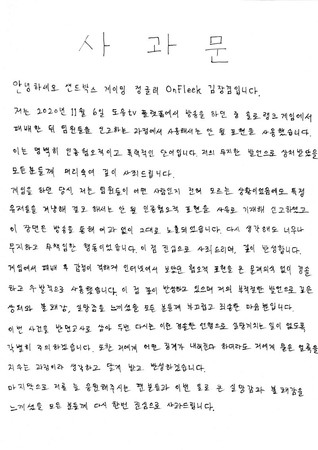 사 과 문
안녕하세요 샌드박스 게이밍 정글러 OnFleek 김장겸입니다.
저는 2020년 11월 6일 도우tv 플랫폼에서 방송을 하던 중 솔로랭크 게임에서
패배한 뒤 팀원들을 신고하는 과정에서 사용해서는 안 될 표현을 사용했습니다.
이는 명백히 인종혐오적이고 폭력적인 단어입니다. 저의 무지한 발언으로 상처받았을
모든분들께 머리숙여 깊이 사죄드립니다.
게임을 하던 당시, 저는 팀원들이 어떤 사람인지 전혀 모르는 상황이었음에도 특정
유저들을 겨냥해 결코 해서는 안 될 인종혐오적 표현을 사유로 기재해 신고하였고
이 장면은 방송을 통해 여과 없이 그대로 노출되었습니다. 다시 생각해도 너무나
무지하고 무책임한 행동이었습니다. 이 점 진심으로 사죄드리며, 깊이 반성합니다.
게임에서 패배 후 감정이 격해져 인터넷에서 보았던 혐오적 표현을 큰 문제의식 없이 경솔
하고 우발적으로 사용했습니다. 이 점 깊이 반성하고 있으며 저의 부적절한 발언으로 깊은
상처와 불쾌감, 실망감을 느끼셨을 모든 분들께 부끄럽고 죄송한 마음뿐입니다.
이번 사건을 반면교사로 삼아 두번 다시는 이런 경솔한 언행으로 실망끼치는 일이 없도록
각별히 주의하겠습니다. 또한 저에게 어떤 징계가 내려진다 하더라도 저에게 묻은 얼룩을
지우는 과정이라 생각하고 달게 받고 반성하겠습니다.
마지막으로 저를 늘 응원해주시는 팬분들과 이번 일로 큰 실망감과 불쾌감을
느끼셨을 모든 분들께 다시 한번 진심으로 사과드립니다.